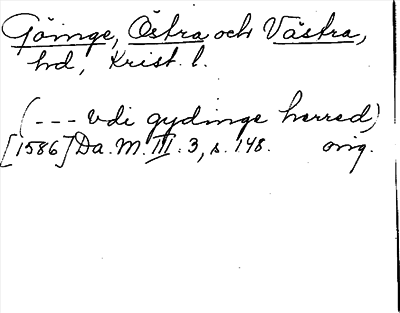 Göinge, Östra och Västra,
hd, Krist. l.
(--- vdi gydinge herred)
[1586] Da. M. III. 3, s. 148. orig.